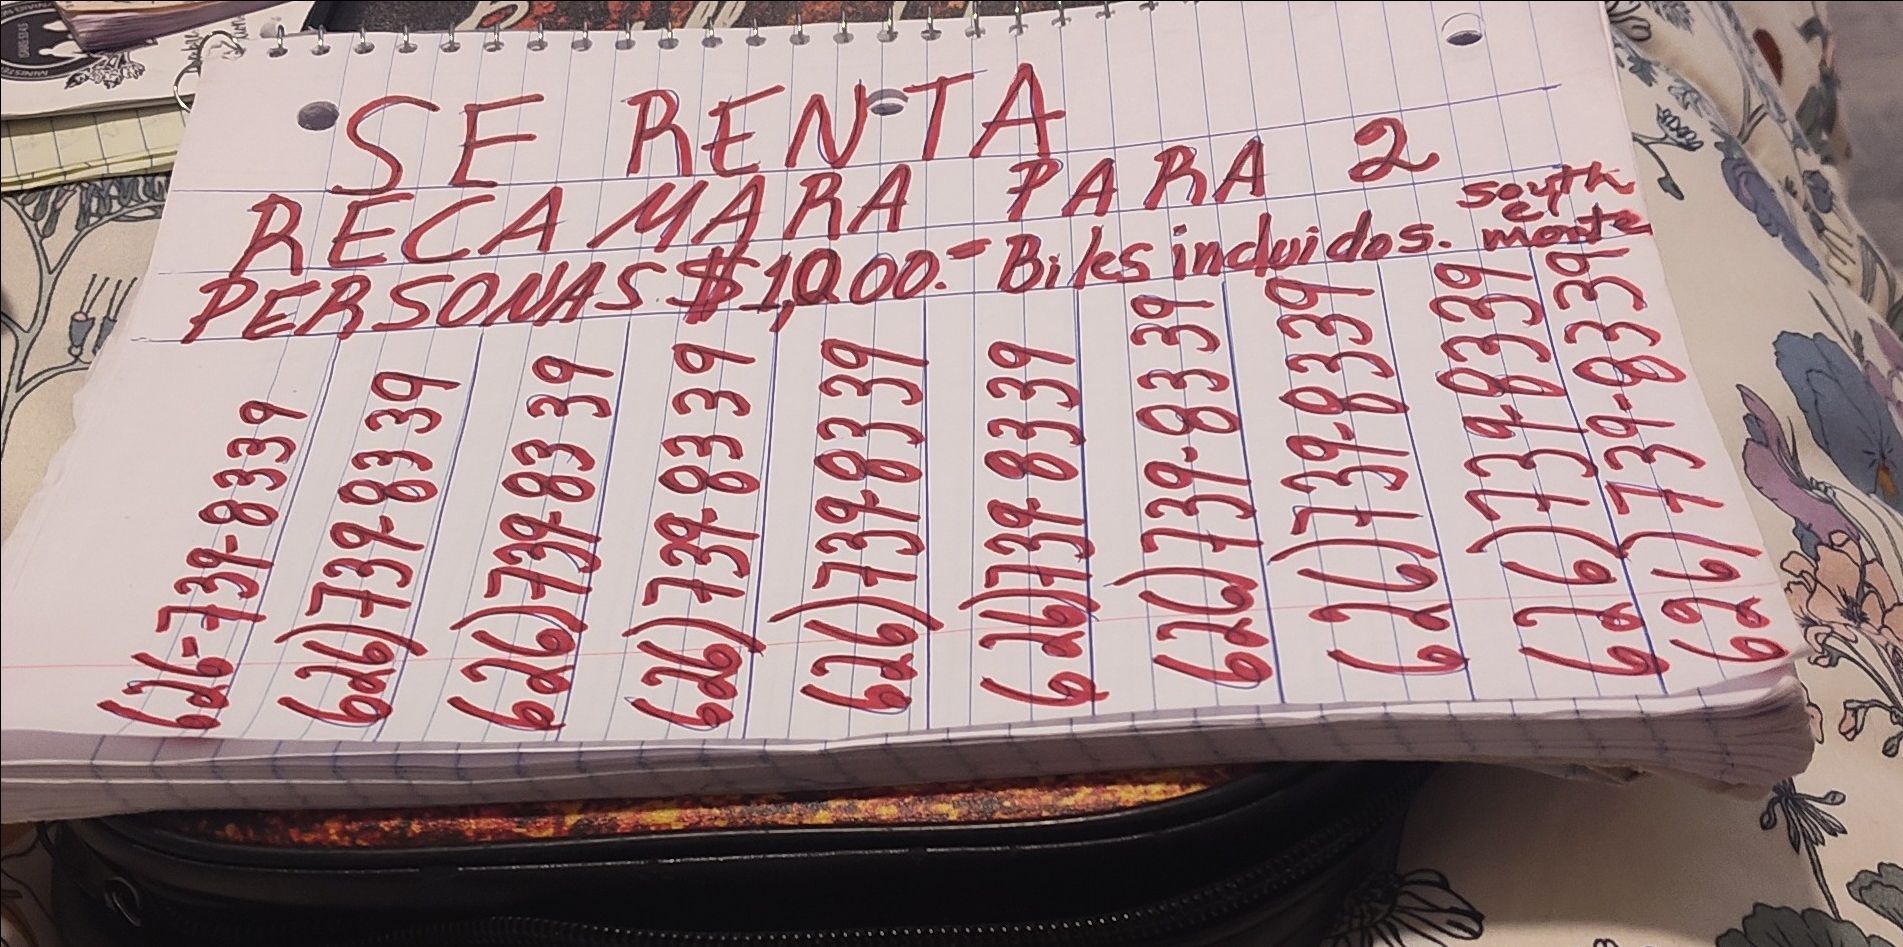 SE RENTA
RECAMARA PARA 2
PERSONAS $1,000.= Biles incluidos. south el monte
626-739-8339
626)739-8339
626)739-8339
626)739-8339
626)739-8339
626)739-8339
626)739-8339
626)739-8339
626)739-8339
626)739-8339